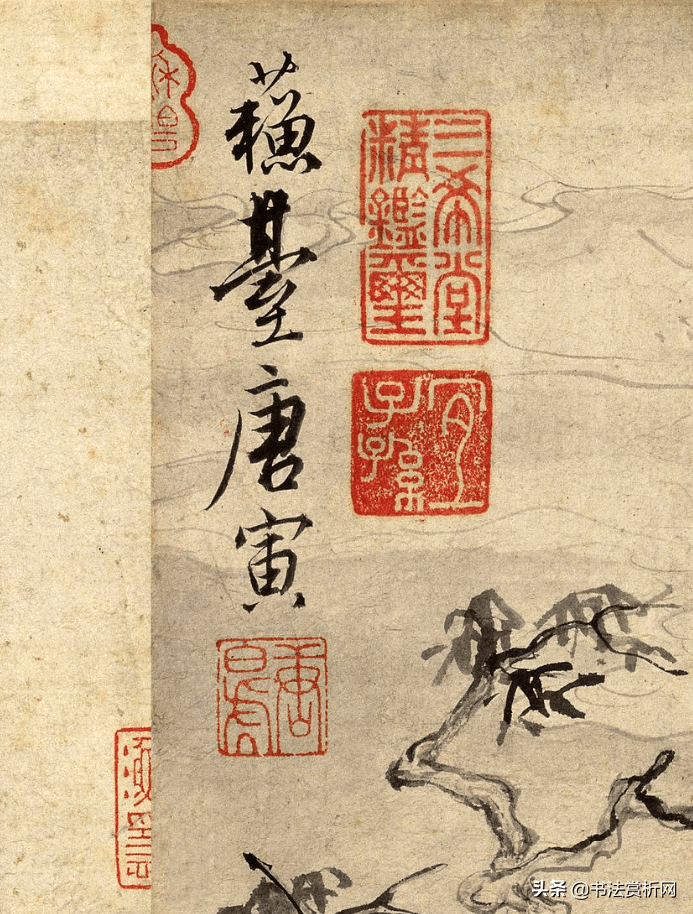 三希堂
精鑑璽
宜子孫
蘓臺唐寅
唐
白虎
头条 @书法赏析网